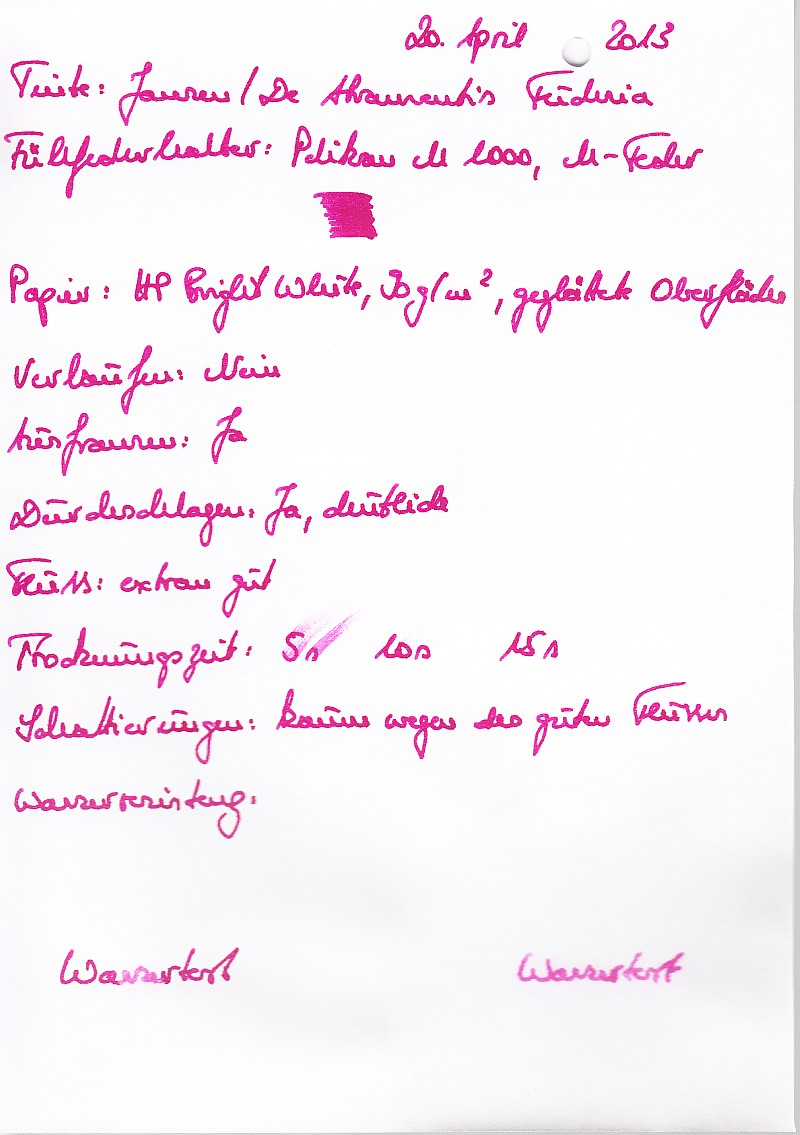 20. April 2013
Tinte: Jansen / De Atramentis Fuchsia
Füllfederhalter: Pelikan M 1000, M-Feder
Papier: HP Bright White, 90 g/m², geglättete Oberfläche
Verlaufen: Nein
Ausfransen: Ja
Durchschlagen: Ja, deutlich
Fluss: extrem gut
Trocknungszeit: 5s 10s 15s
Schattierungen: kaum wegen des guten Flusses
Wasserresistenz:
Wassertest Wassertest